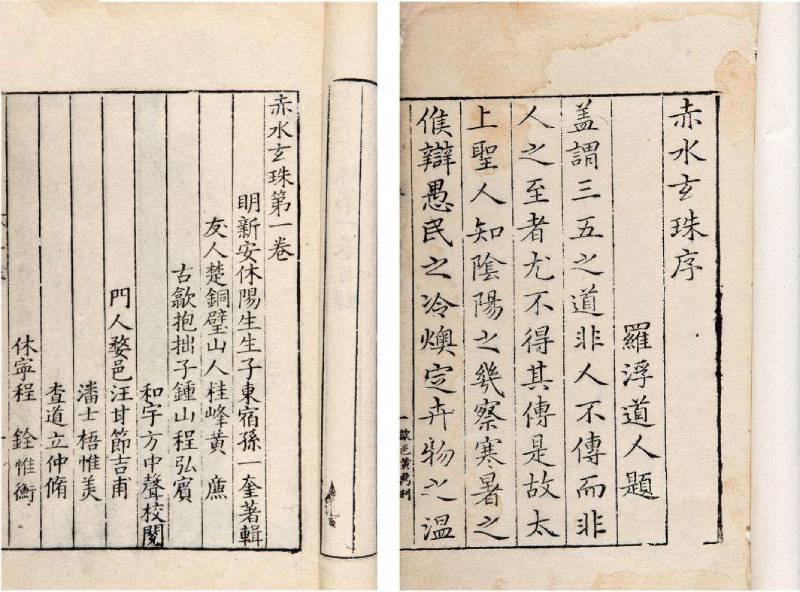 赤水玄珠序
羅浮道人題
盖謂三五之道非人不傳而非
人之至者尤不得其傳是故太
上聖人知隂陽之幾察寒暑之
候辯愚民之冷燠定卉物之温
一 歙邑黃鼎刊
赤水玄珠第一卷
明新安休陽生生子東宿孫一奎著輯
友人楚銅璧山人桂峰黃廉
古歙抱拙子鍾山程弘賓
和宇方中聲校閱
門人婺邑汪甘節吉甫
潘士梧惟美
查道立仲脩
休寧程 銓惟衡